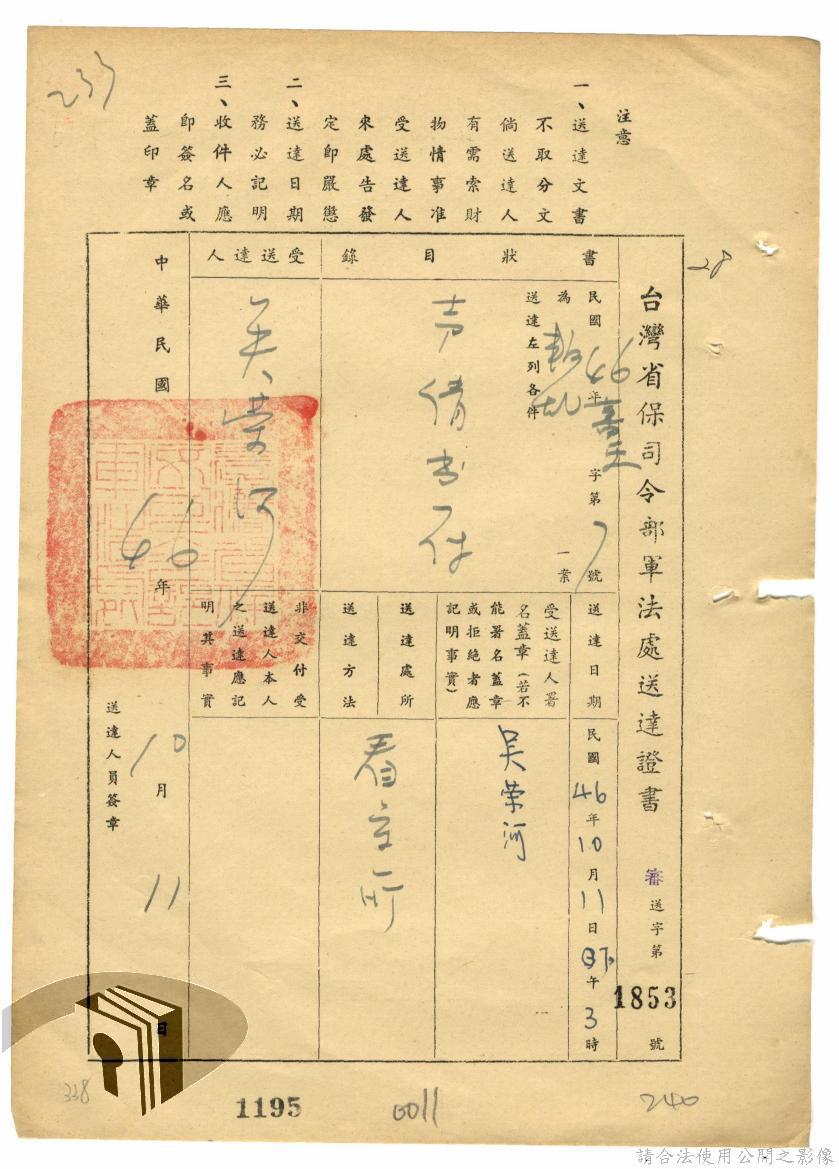 233
注意
一、送達文書
不取分文
倘送達人
有需索財
物情事准
受送達人
來處告發
定即嚴懲
二、送達日期
務必記明
三、收件人應
即簽名或
蓋印章
28
台灣省保司令部軍法處送達證書 審送字第1853號
民國46年審 字第7號
為 一案
送達左列各件
書狀目錄
受送達人
吳榮河
送達日期
民國46年10月11日下午3時
受送達人署
名蓋章(若不
能署名蓋章
或拒絕者應
記明事實)
吳荣河
送達處所
送達方法
看守所
非交付受
送達人本人
之送達應記
明其事實
中華民國46年10月11日
送達人員簽章
338
1195
0011
240
請合法使用公開之影像